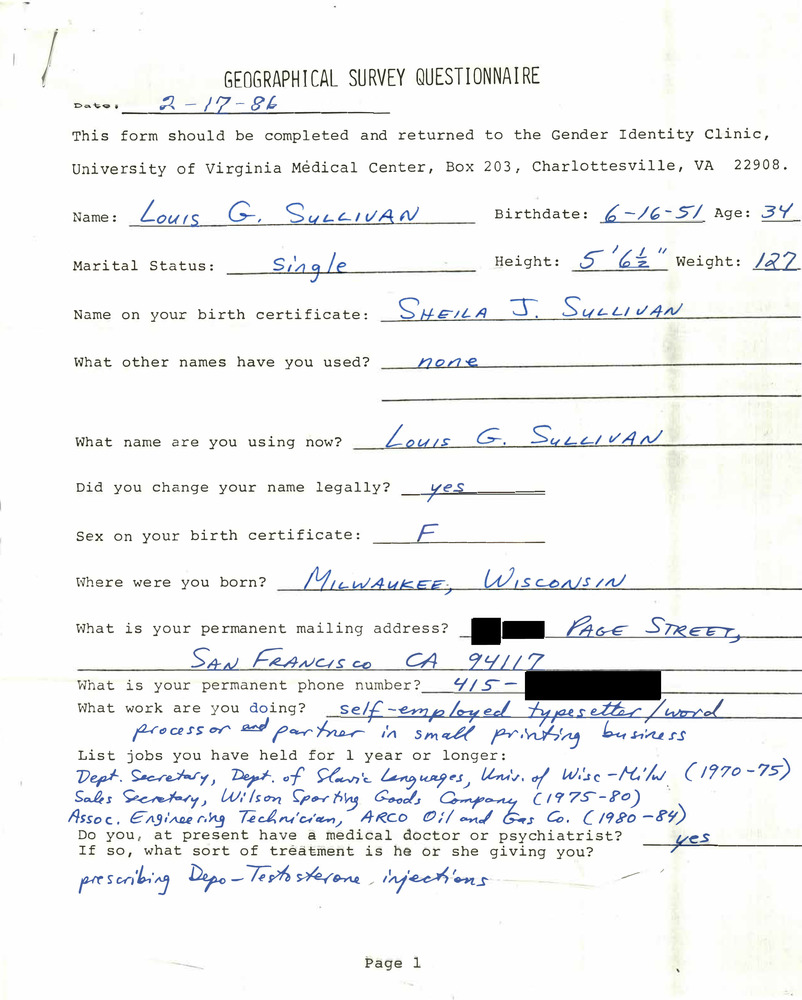 GEOGRAPHICAL SURVEY QUESTIONNAIRE
Date. 2-17-86
This form should be completed and returned to the Gender Identity Clinic,
University of Virginia Médical Center, Box 203, Charlottesville, VA 22908.
Name: LOUIS G. SULLIVAN Birthdate: 6-16-51 Age: 34
Marital Status: Single Height: 5'6½" Weight: 127
Name on your birth certificate: SHEILA J. SULLIVAN
What other names have you used? none
What name are you using now? LOUIS G. SULLIVAN
Did you change your name legally? yes
Sex on your birth certificate: F
Where were you born? MILWAUKEE, WISCONSIN
What is your permanent mailing address? PAGE STREET,
SAN FRANCISCO CA 94117
What is your permanent phone number? 415-
What work are you doing? self-employed typesetter/word
processor and partner in small printing business
List jobs you have held for 1 year or longer:
Dept. Secretary, Dept. of Slavic Languages, Univ. of Wisc-Milw (1970-75)
Sales Secretary, Wilson Sporting Goods Company (1975-80)
Assoc. Engineering Technician, ARCO Oil and Gas Co. (1980-84)
Do you, at present have a medical doctor or psychiatrist? yes
If so, what sort of treatment is he or she giving you?
prescribing Depo-Testosterone injections
Page 1